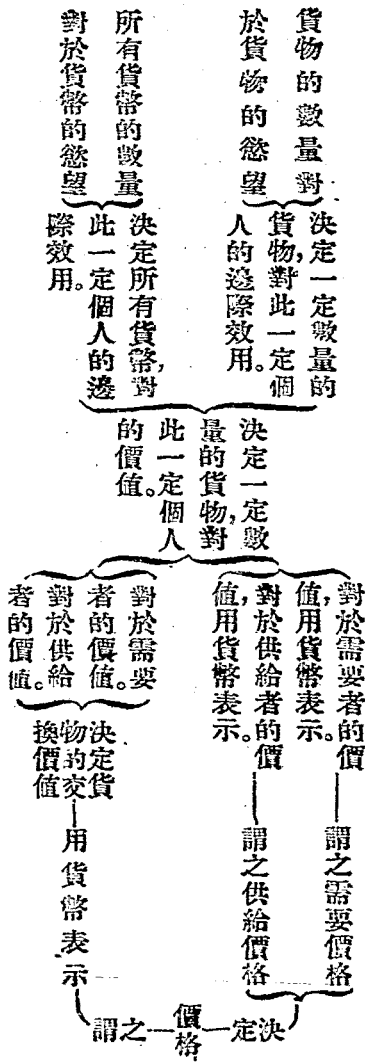 貨物的數量對
於貨物的慾望
所有貨幣的數量
對於貨幣的慾望
決定一定數量的
貨物，對此一定個
人的邊際效用。
決定所有貨幣，對
此一定個人的邊
際效用。
決定一定數
量的貨物，對
此一定個人
的價值。
對於需要者的價
值，用貨幣表示。
對於供給者的價
值，用貨幣表示。
對於需要
者的價值。
對於供給
者的價值。
謂之需要價格
謂之供給價格
決定貨
物的交
換價值
用貨幣表示
決定
價格
謂之